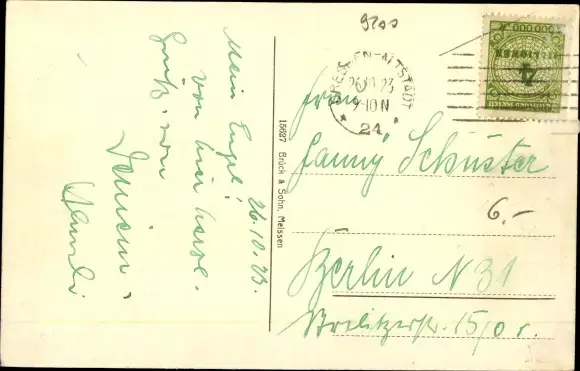 9200
DRESDEN-ALTSTADT
26.10.23
9-10 N
* 24 *
4
MILLIONEN
Mein Engel! 26.10.23.
von hier herzl.
Gruß, von
Deinem
15627 Brück & Sohn, Meissen
Frau
Fanny Schuster
6.-
Berlin N 31
Strelitzerstr. 15/0 r.